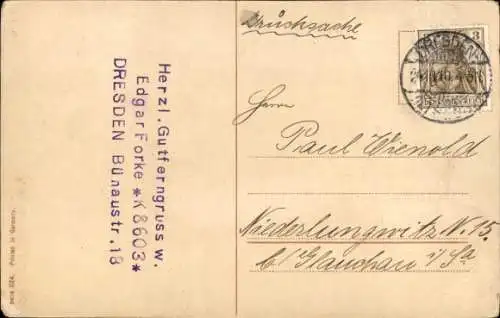 Drucksache
3
DRESDEN
Herrn
Paul Wienold
Niederlungwitz N. 15.
b/Glauchau i/Sa
Herzl. Gutferngruss w.
Edgar Forke *K8603*
DRESDEN Bünaustr. 18
Printed in Germany.